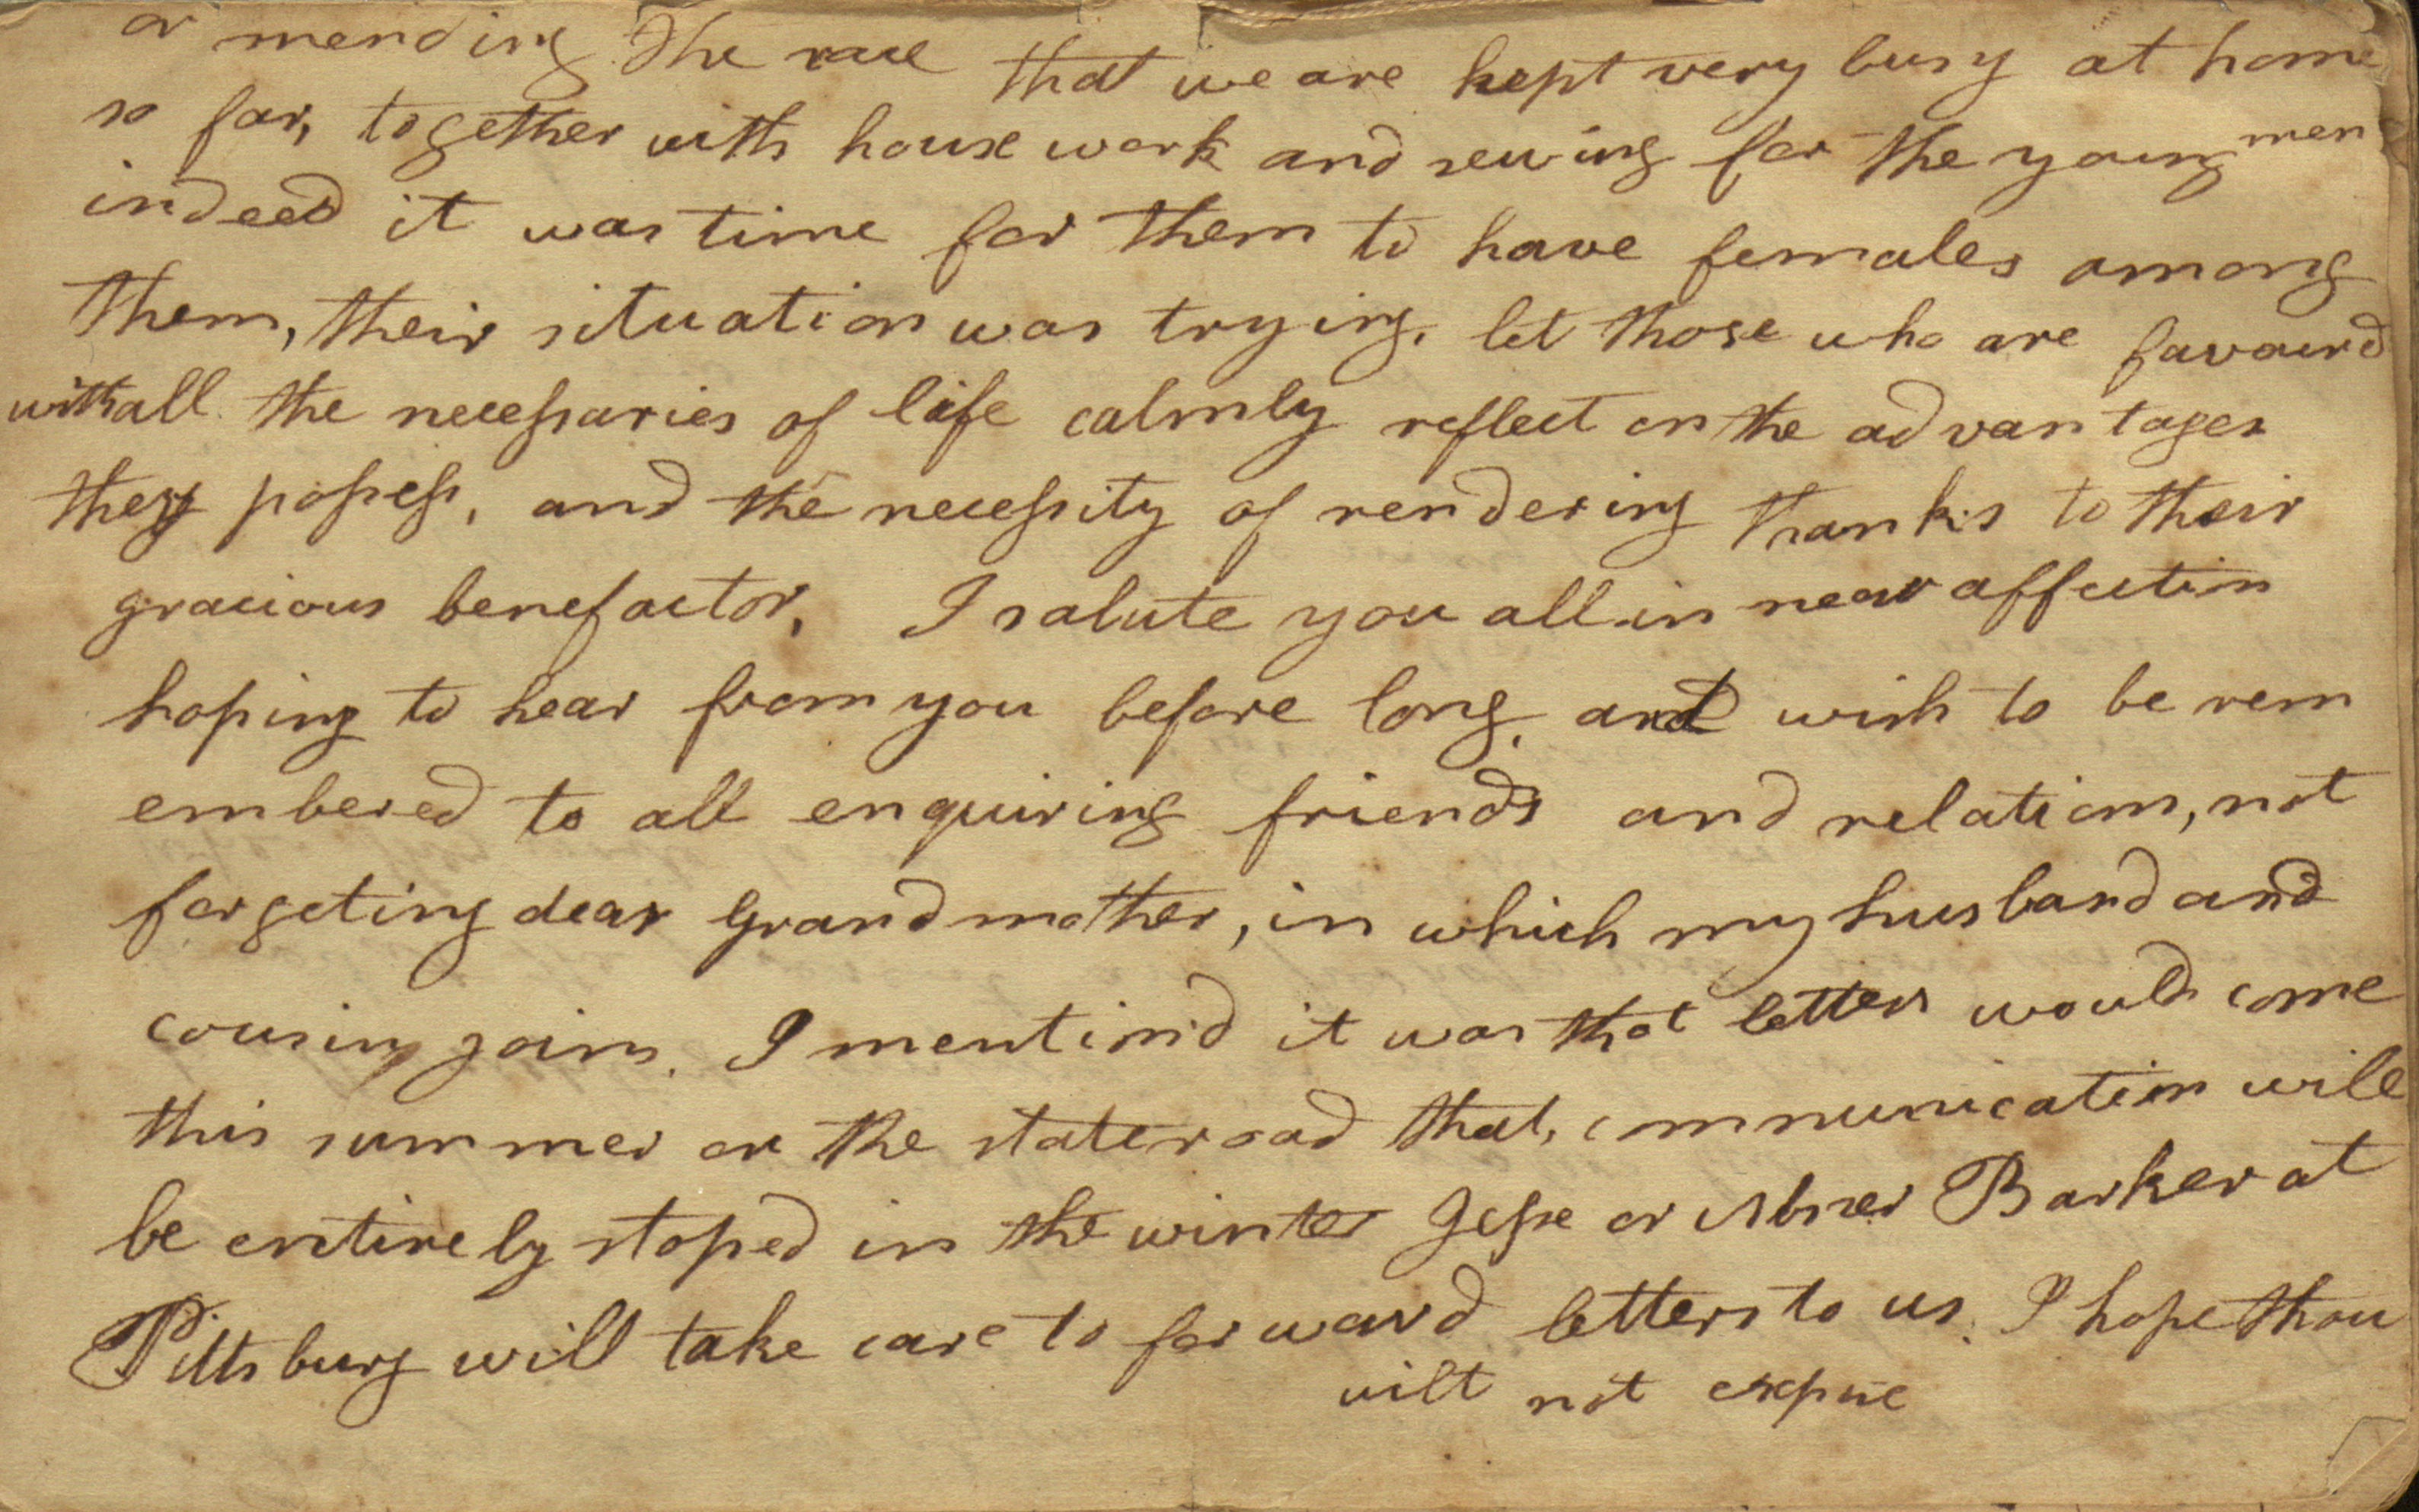 or mending the race that we are kept very busy at home
so far, together with house work and sewing for the young men
indeed it was time for them to have females among
them, their situation was trying, let those who are favourd
with all the necessaries of life calmly reflect on the advantages
they possess, and the necessity of rendering thanks to their
gracious benefactor, I salute you all in near affection
hoping to hear from you before long, and wish to be rem
embered to all enquiring friends and relations, not
forgeting dear Grandmother, in which my husband and
cousins joins. I mention'd it was that letters would come
this summer on the state road that, communication will
be entirely stoped in the winter Jesse or Abner Barker at
Pittsburg will take care to forward letters to us. I hope thou
wilt not expose